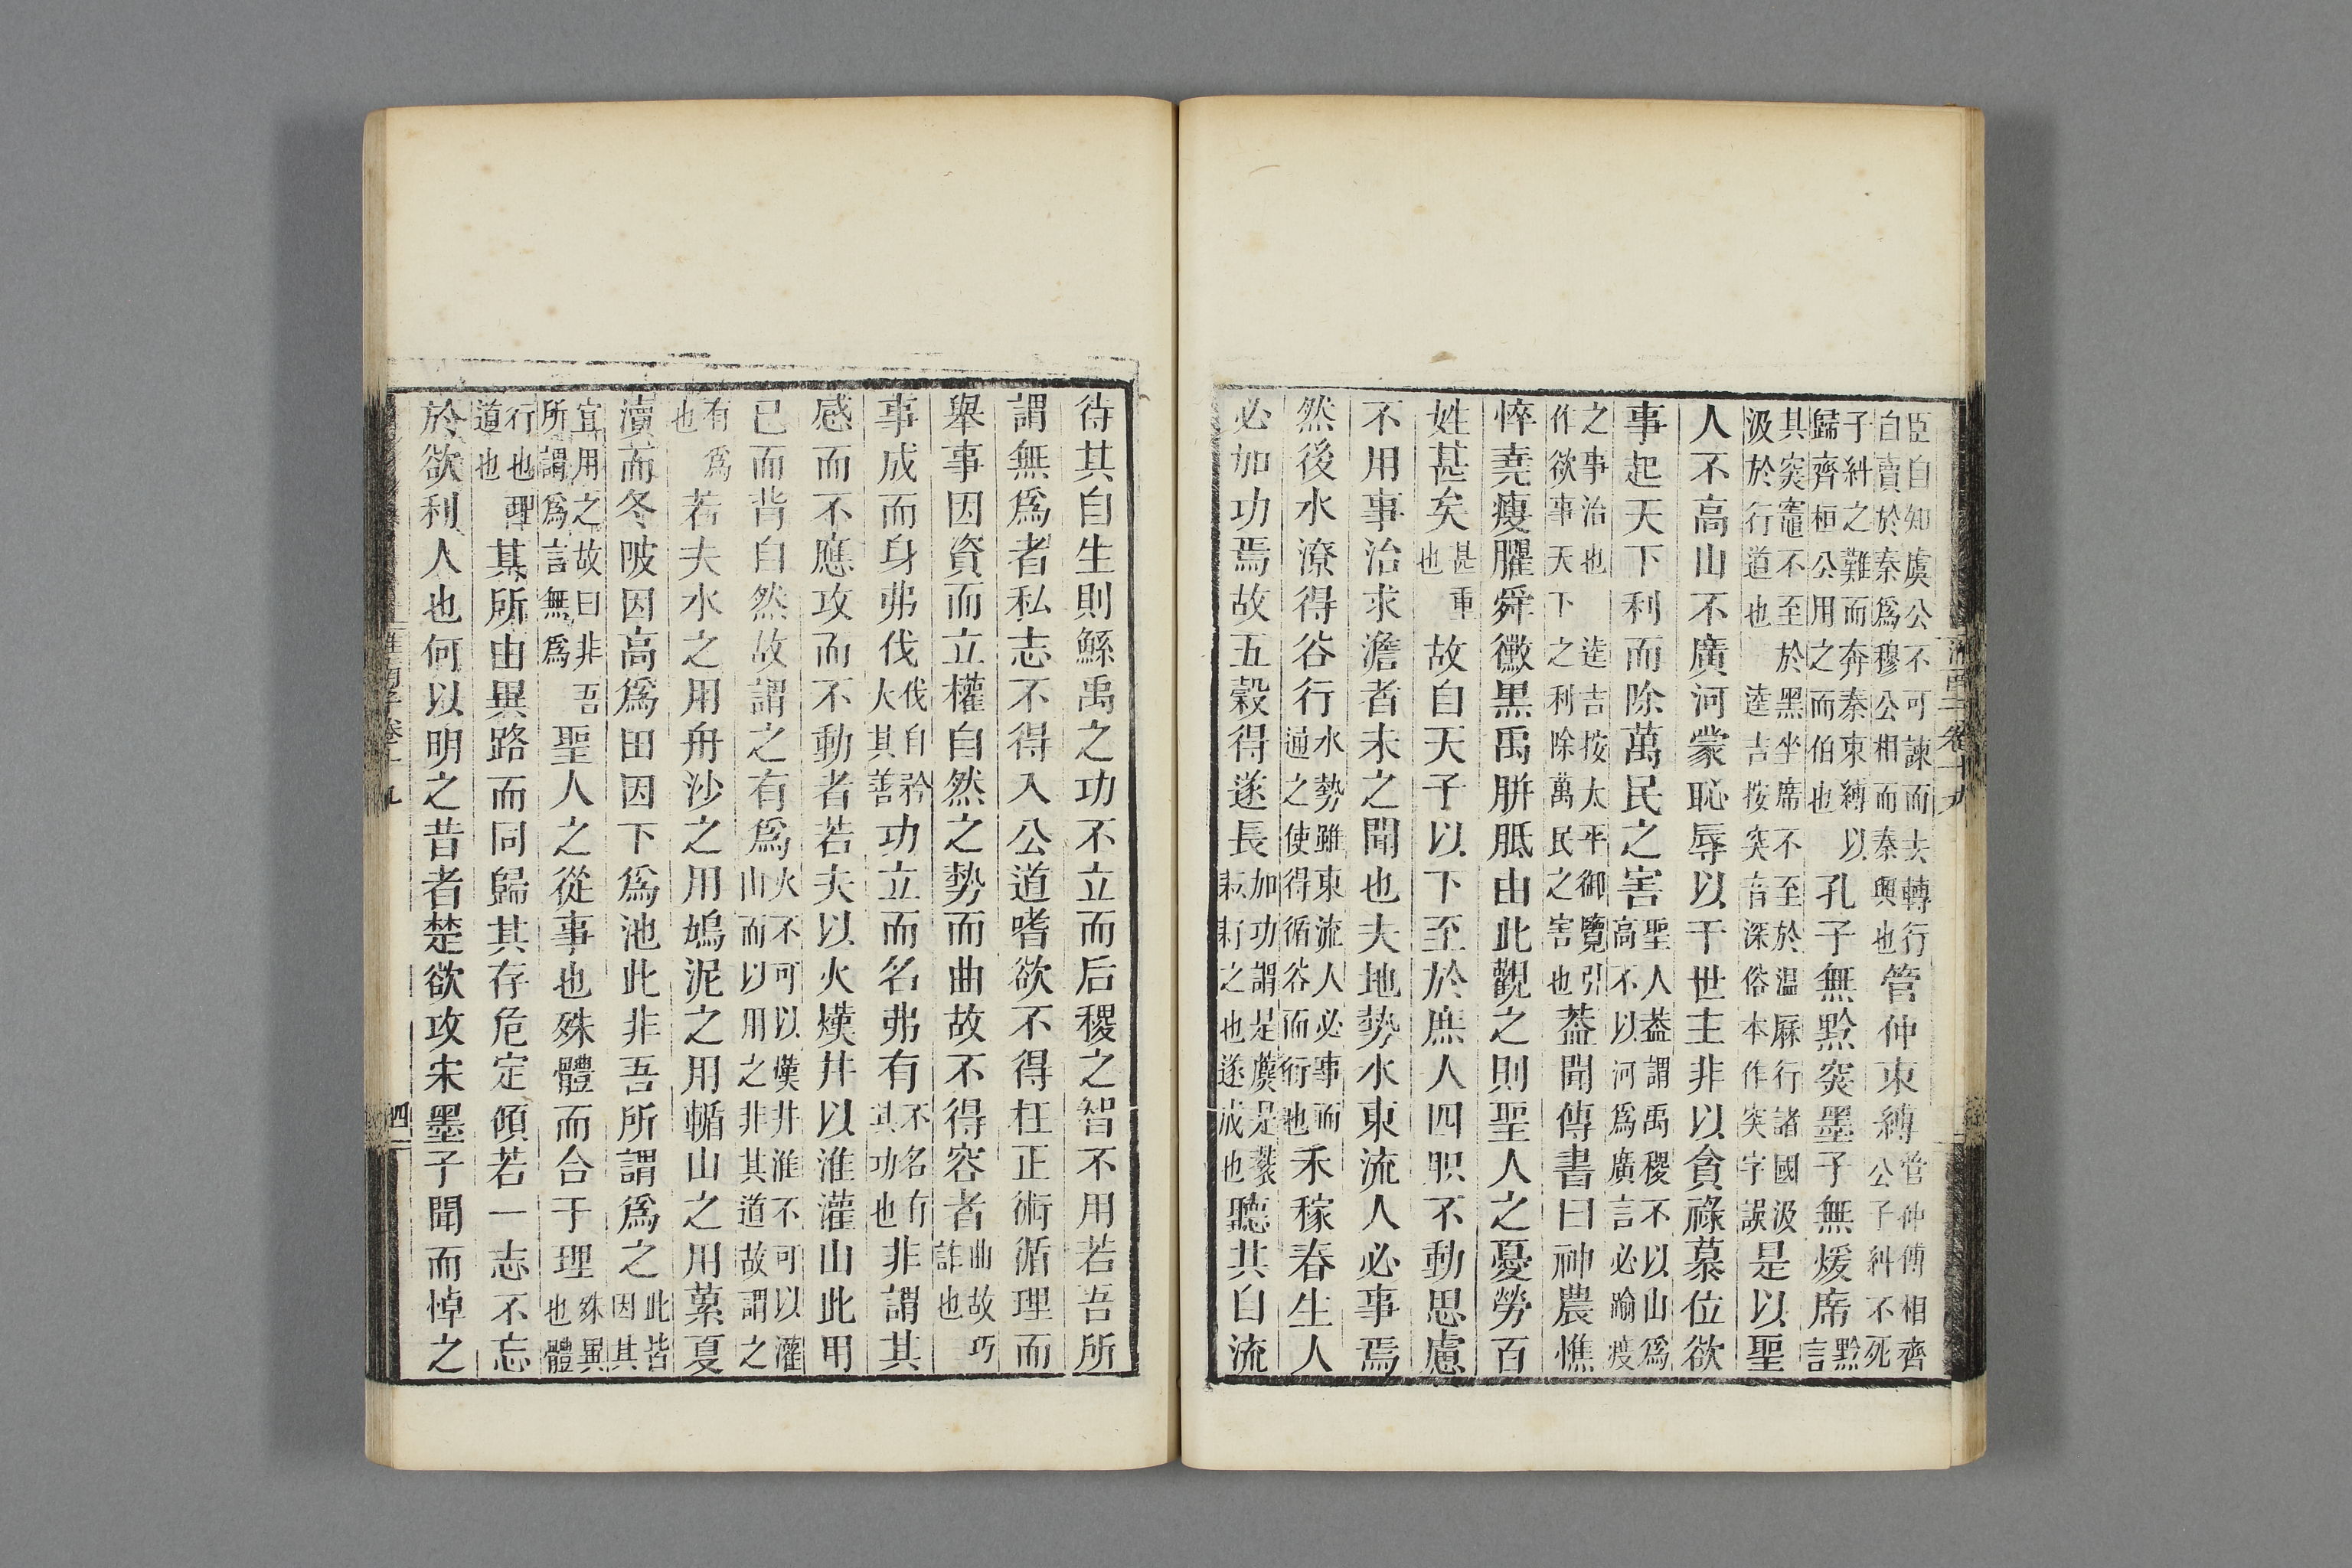 臣自知虞公不可諫而去轉行自賣於秦爲穆公相而秦興也管仲束縛管仲傅相齊公子糾不死
子糾之難而奔秦束縛以歸齊桓公用之而伯也孔子無黔突墨子無煖席黔言
其突竈不至於黑坐席不至於溫厤行諸國汲汲於行道也逵吉按突音深俗本作突字誤是以聖
人不高山不廣河蒙恥辱以干世主非以貪祿慕位欲
事起天下利而除萬民之害聖人葢謂禹稷不以山爲高不以河爲廣言必踰渡
之事治也逵吉按太平御覽引作欲事天下之利除萬民之害也葢聞傳書曰神農憔
悴堯瘦臞舜黴黑禹胼胝由此觀之則聖人之憂勞百
姓甚矣甚重也故自天子以下至於庶人四胑不動思慮
不用事治求澹者未之聞也夫地勢水東流人必事焉
然後水潦得谷行水勢雖東流人必事而通之使得循谷而行也禾稼春生人
必加功焉故五穀得遂長加功謂是藨是蔉耘耔之也遂成也聽其自流
待其自生則鯀禹之功不立而后稷之智不用若吾所
謂無爲者私志不得入公道嗜欲不得枉正術循理而
舉事因資而立權自然之勢而曲故不得容者曲故巧詐也
事成而身弗伐伐自矜大其善功立而名弗有不名有其功也非謂其
感而不應攻而不動者若夫以火熯井以淮灌山此用
已而背自然故謂之有爲火不可以熯井淮不可以灌山而以用之非其道故謂之
有爲也若夫水之用舟沙之用鳩泥之用輴山之用蔂夏
瀆而冬陂因高爲田因下爲池此非吾所謂爲之此皆因其
宜用之故曰非吾所謂爲言無爲聖人之從事也殊體而合于理殊異也體
行也理道也其所由異路而同歸其存危定傾若一志不忘
於欲利人也何以明之昔者楚欲攻宋墨子聞而悼之
淮南子卷十九
四